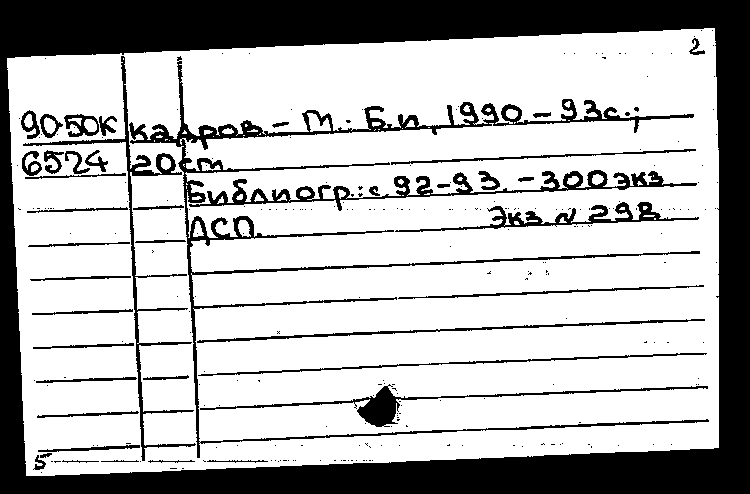 2
90-50К кадров. - М.: Б.и., 1990. - 93с.;
6524 20см.
Библиогр.: с. 92-93. - 300 экз.
ДСП. Экз. № 298
5